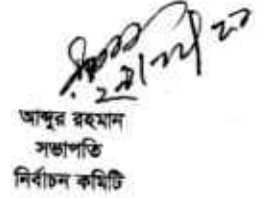 আব্দুর রহমান
সভাপতি
নির্বাচন কমিটি